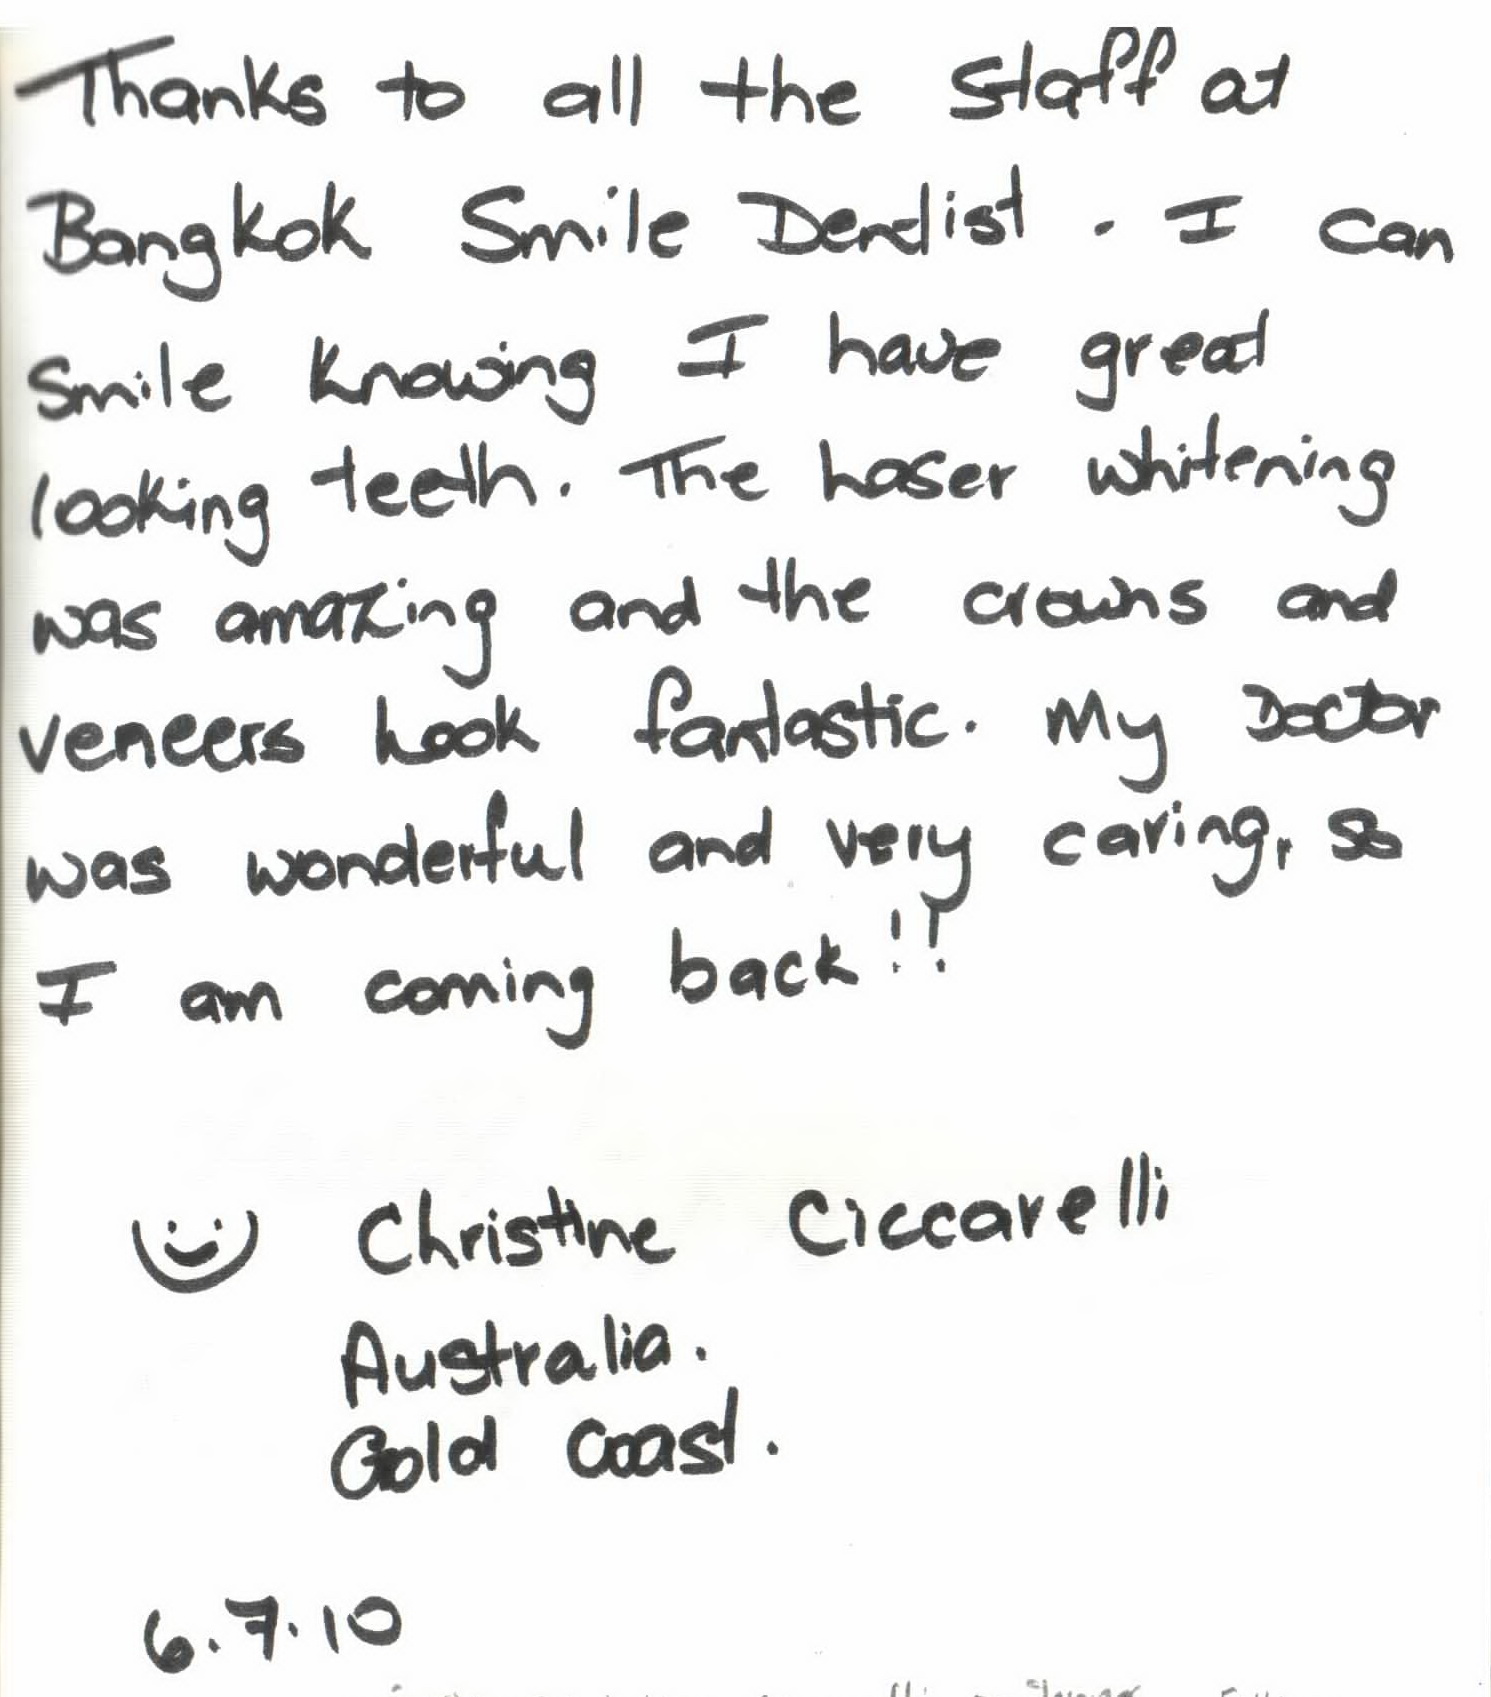 Thanks to all the staff at
Bangkok Smile Dentist. I can
Smile knowing I have great
looking teeth. The Laser whitening
was amazing and the crowns and
veneers Look fantastic. My Doctor
was wonderful and very caring, so
I am coming back!!
Christine Ciccarelli
Australia.
Gold Coast.
6.7.10